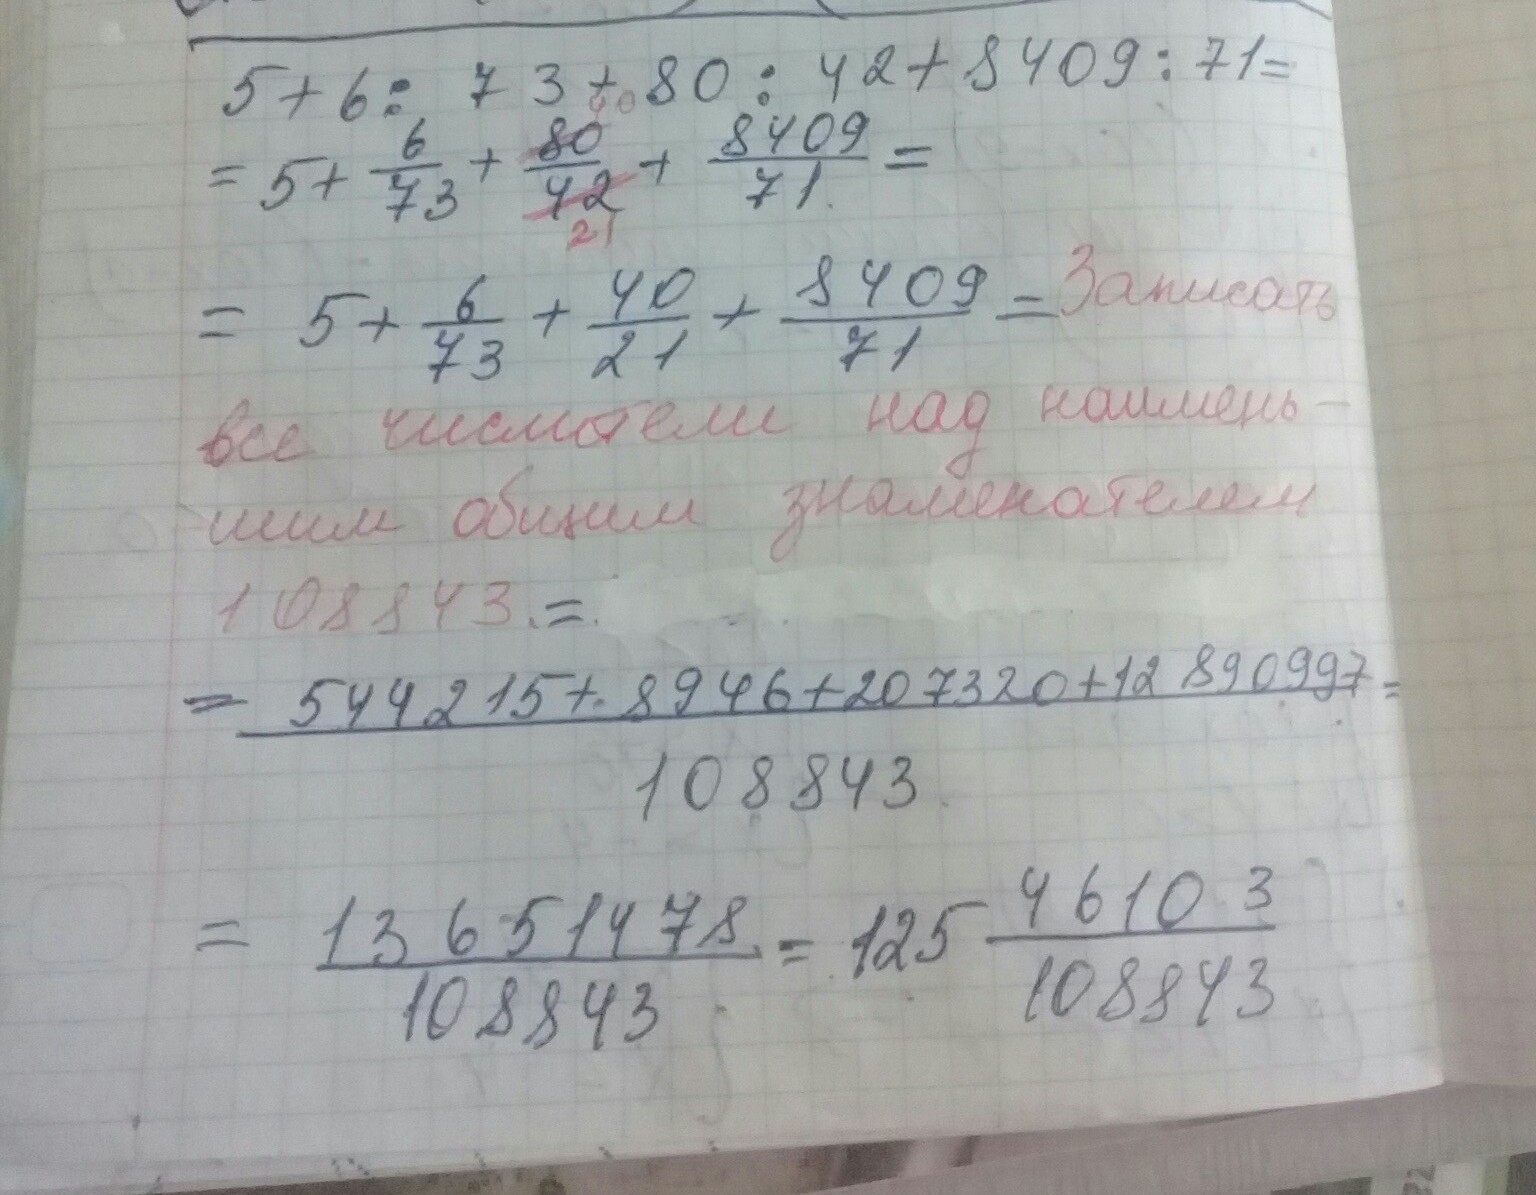 5+6: 73+80: 42+8409:71=
= 5+ 6/73 + 80/42 + 8409/71 =
40
21
= 5+ 6/73 + 40/21 + 8409/71 = Записать
все числители над наимень-
шим общим знаменателем
108843.=
= 544215+8946+207320+12890997/108843 =
= 13651478/108843 = 125 46103/108843